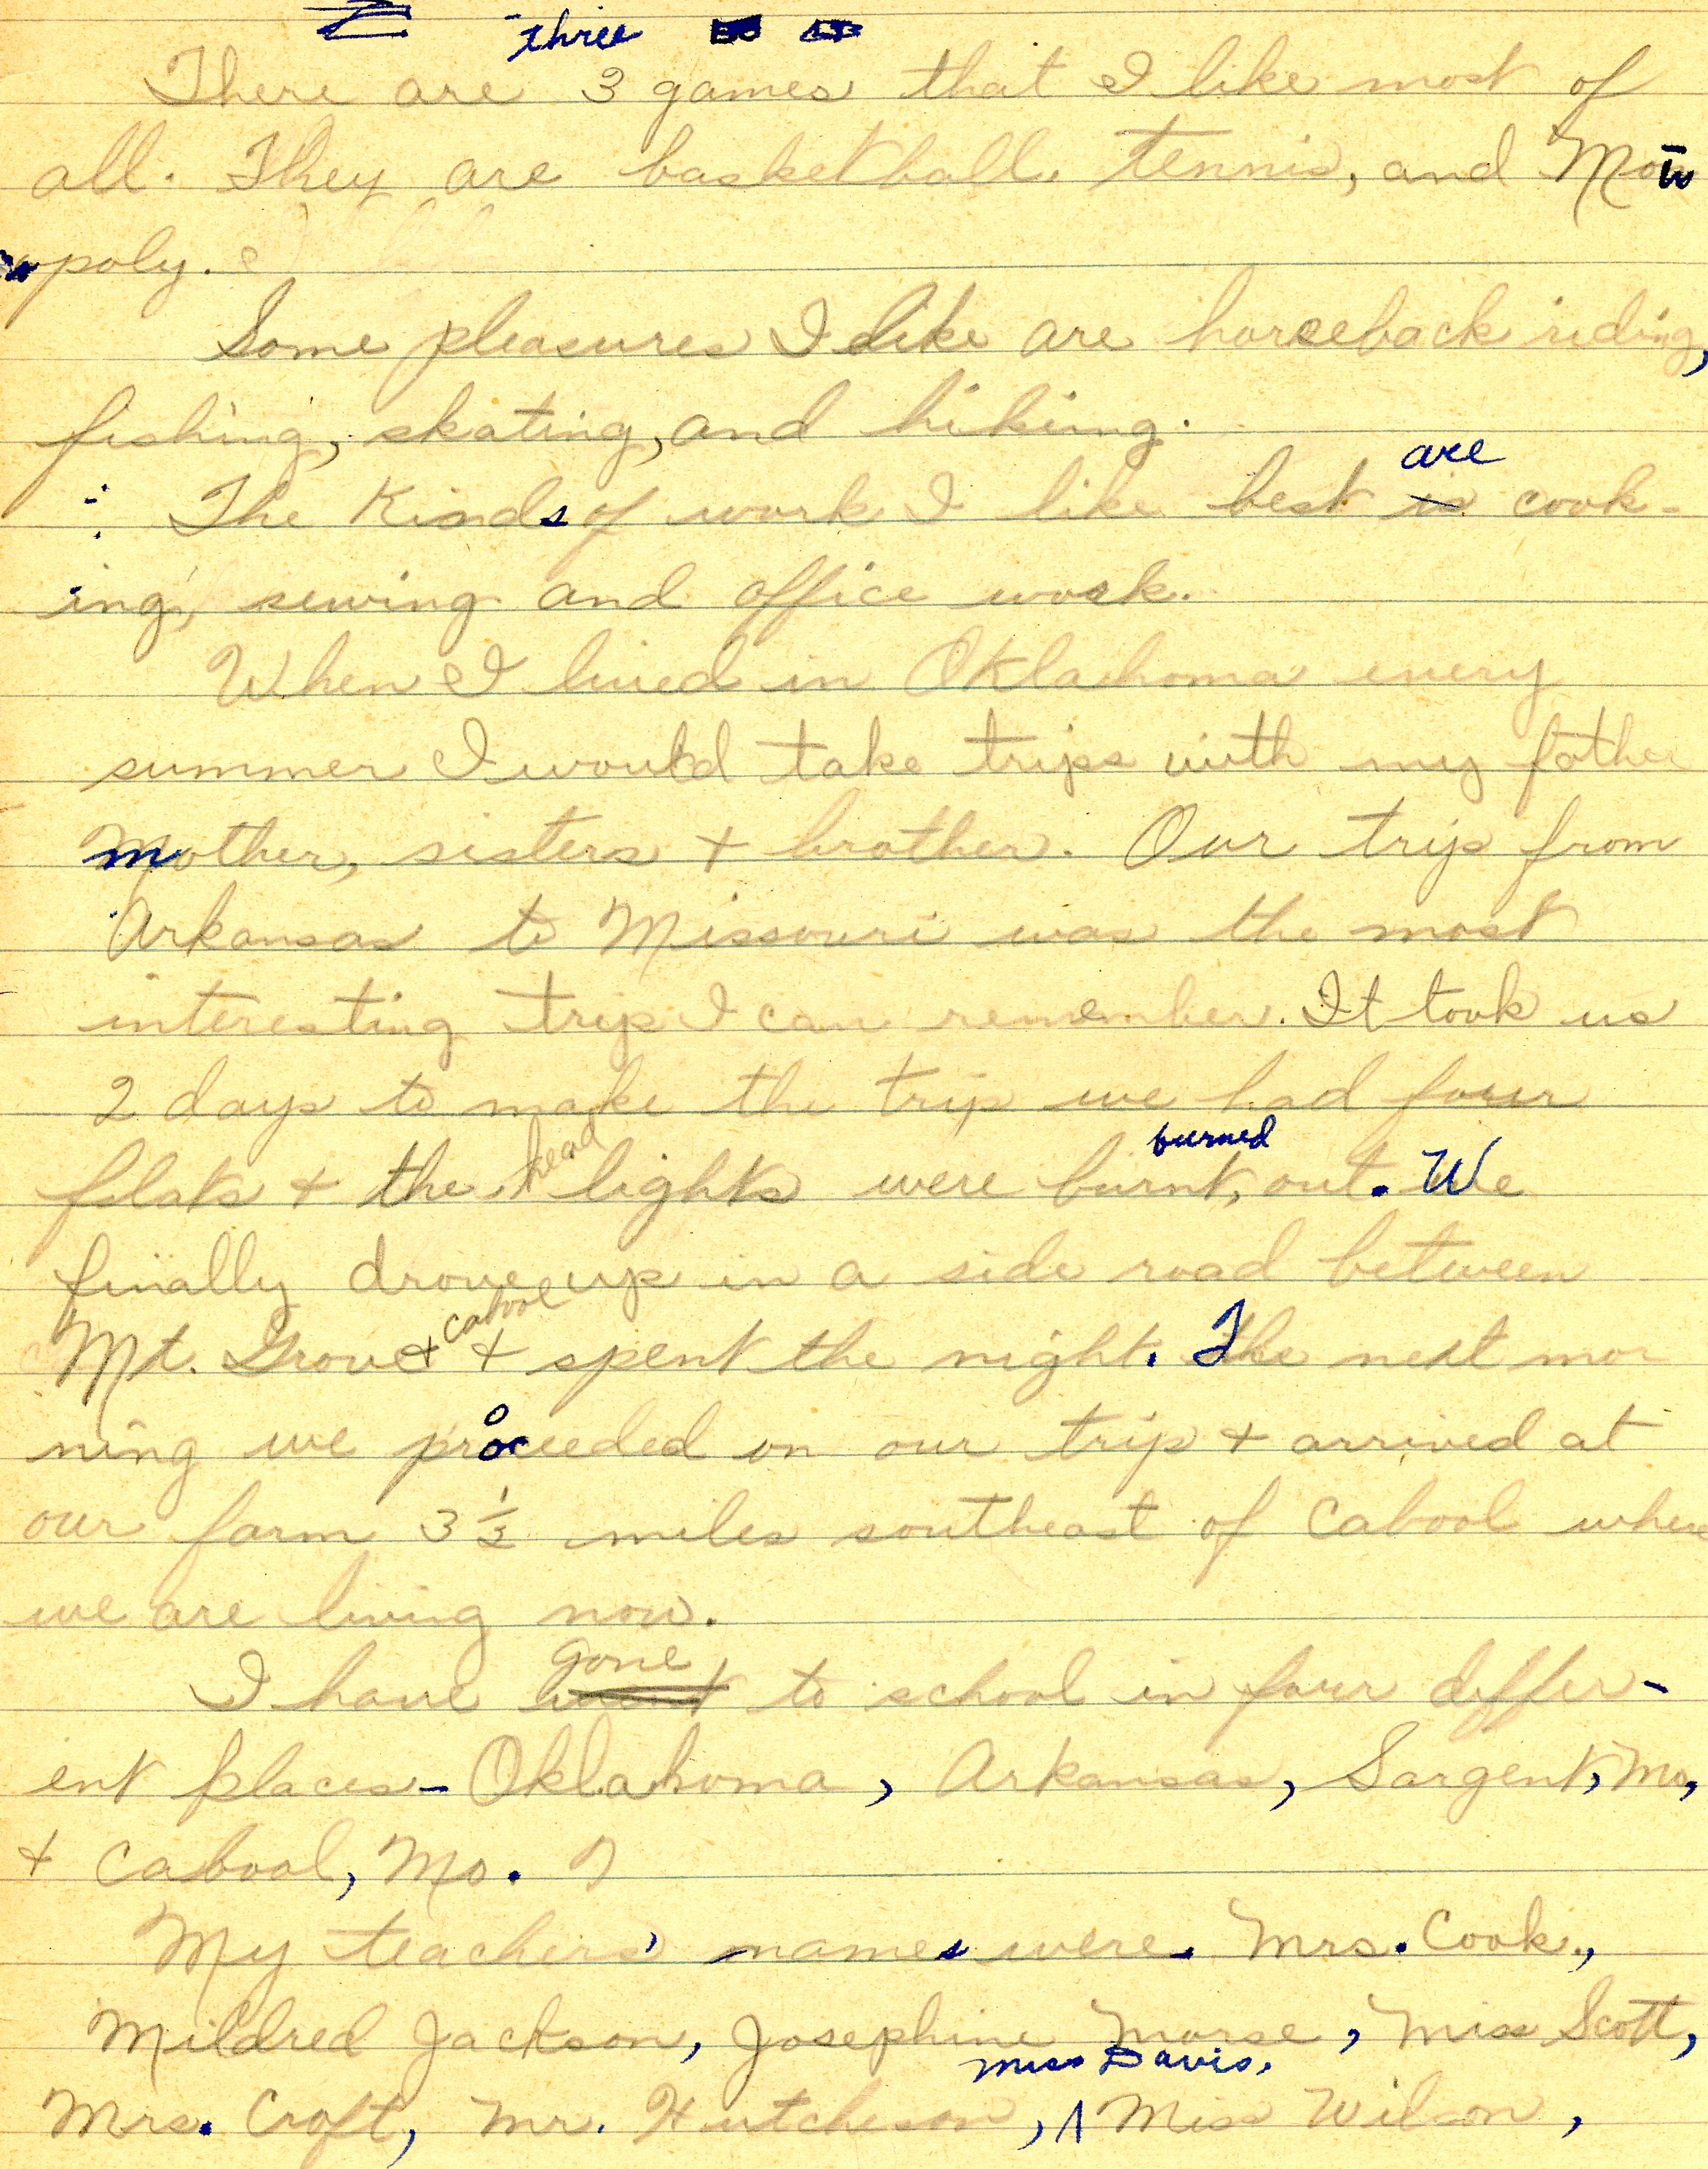 three
There are 3 games that I like most of
all. They are basketball, tennis, and Mon
opoly.
Some pleasures I like are horseback riding,
fishing, skating, and hiking.
are
The Kinds of work I like best is cook-
ing, sewing and office work.
When I lived in Oklahoma every
summer I would take trips with my father
mother, sisters + brother. Our trip from
Arkansas to Missouri was the most
interesting trip I can remember. It took us
2 days to make the trip we had four
head burned
flats + the lights were burnt, out. We
finally drove up in a side road between
cabool
Mt. Grove + + spent the night. The next mor
o
ning we proceeded on our trip + arrived at
our farm 3 1/2 miles southeast of Cabool where
we are living now.
gone
I have went to school in four differ-
ent places - Oklahoma, Arkansas, Sargent, Mo,
+ Cabool, Mo.
My teachers' names were. Mrs. Cook.,
Mildred Jackson, Josephine Morse, Miss Scott,
Miss Davis,
Mrs. Croft, Mr. Hutcheson, ^ Miss Wilson,